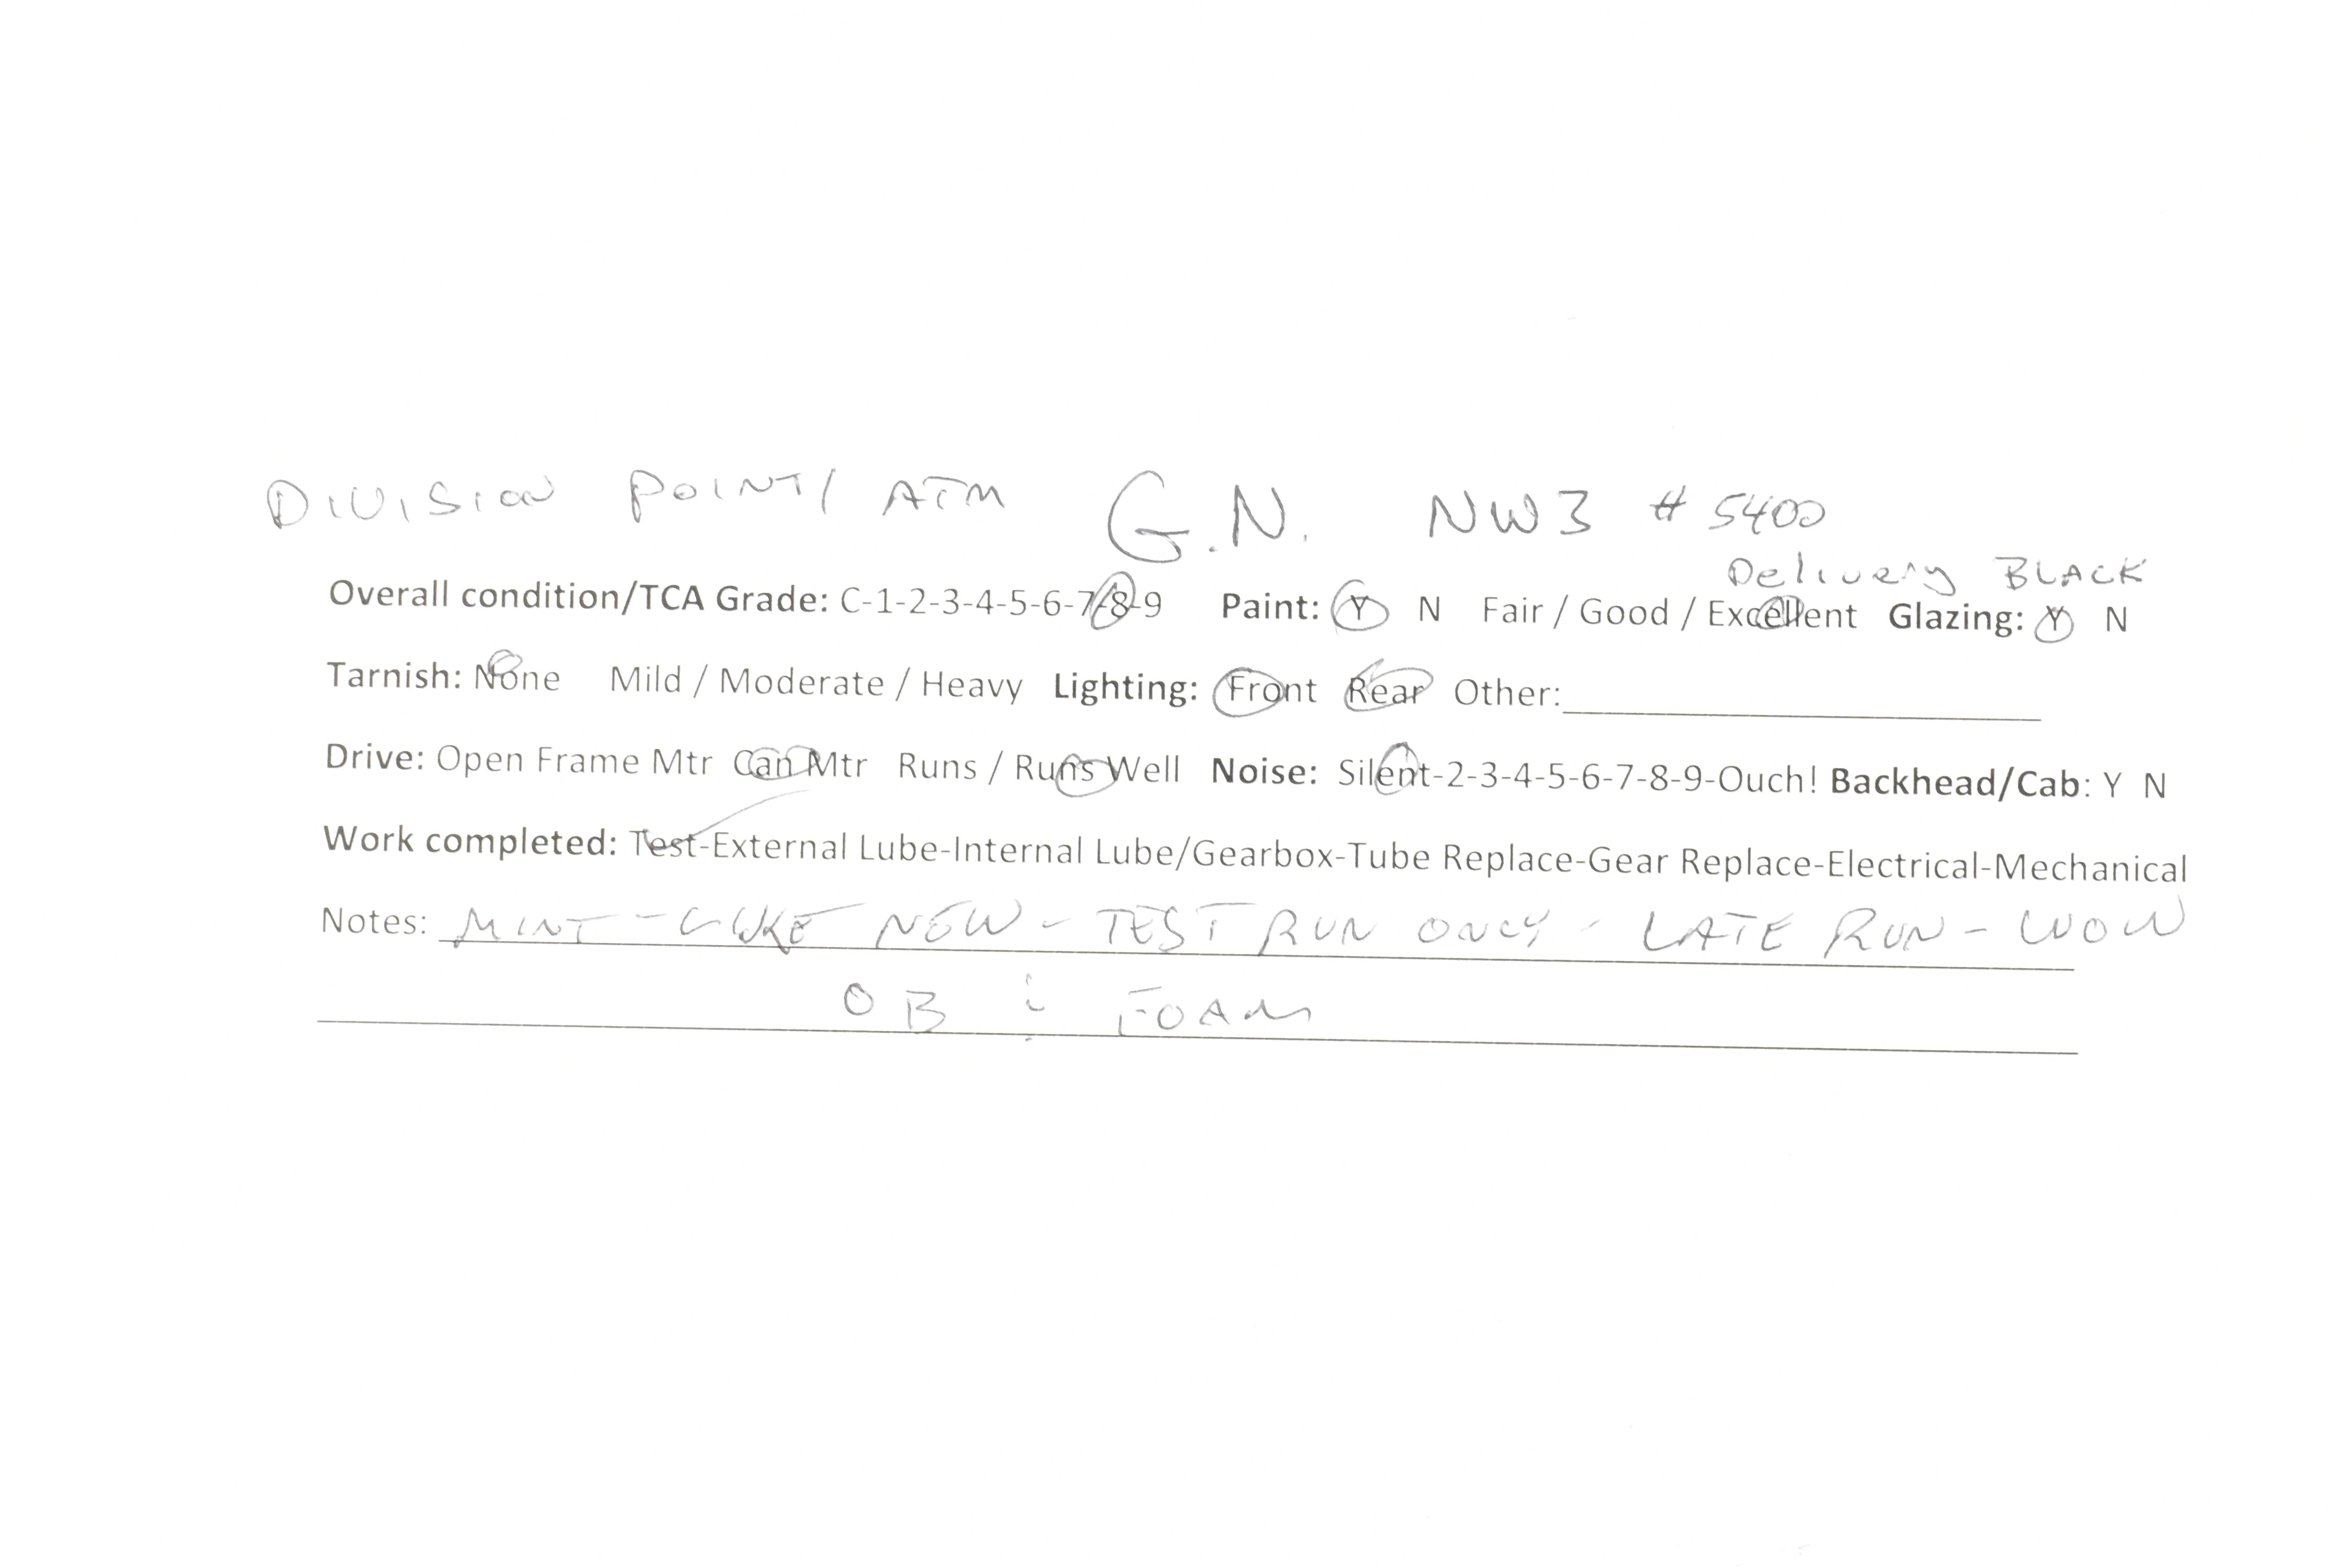 DIVISION POINT/ ATM G.N. NW3 # 5400
Delivery BLACK
Overall condition/TCA Grade: C-1-2-3-4-5-6-7-8-9 Paint: Y N Fair / Good / Excellent Glazing: Y N
Tarnish: None Mild / Moderate / Heavy Lighting: Front Rear Other:
Drive: Open Frame Mtr Can Mtr Runs / Runs Well Noise: Silent-2-3-4-5-6-7-8-9-Ouch! Backhead/Cab: Y N
Work completed: Test-External Lube-Internal Lube/Gearbox-Tube Replace-Gear Replace-Electrical-Mechanical
Notes: MINT - LIKE NEW - TEST RUN ONLY - LATE RUN - WOW
OB & FOAM